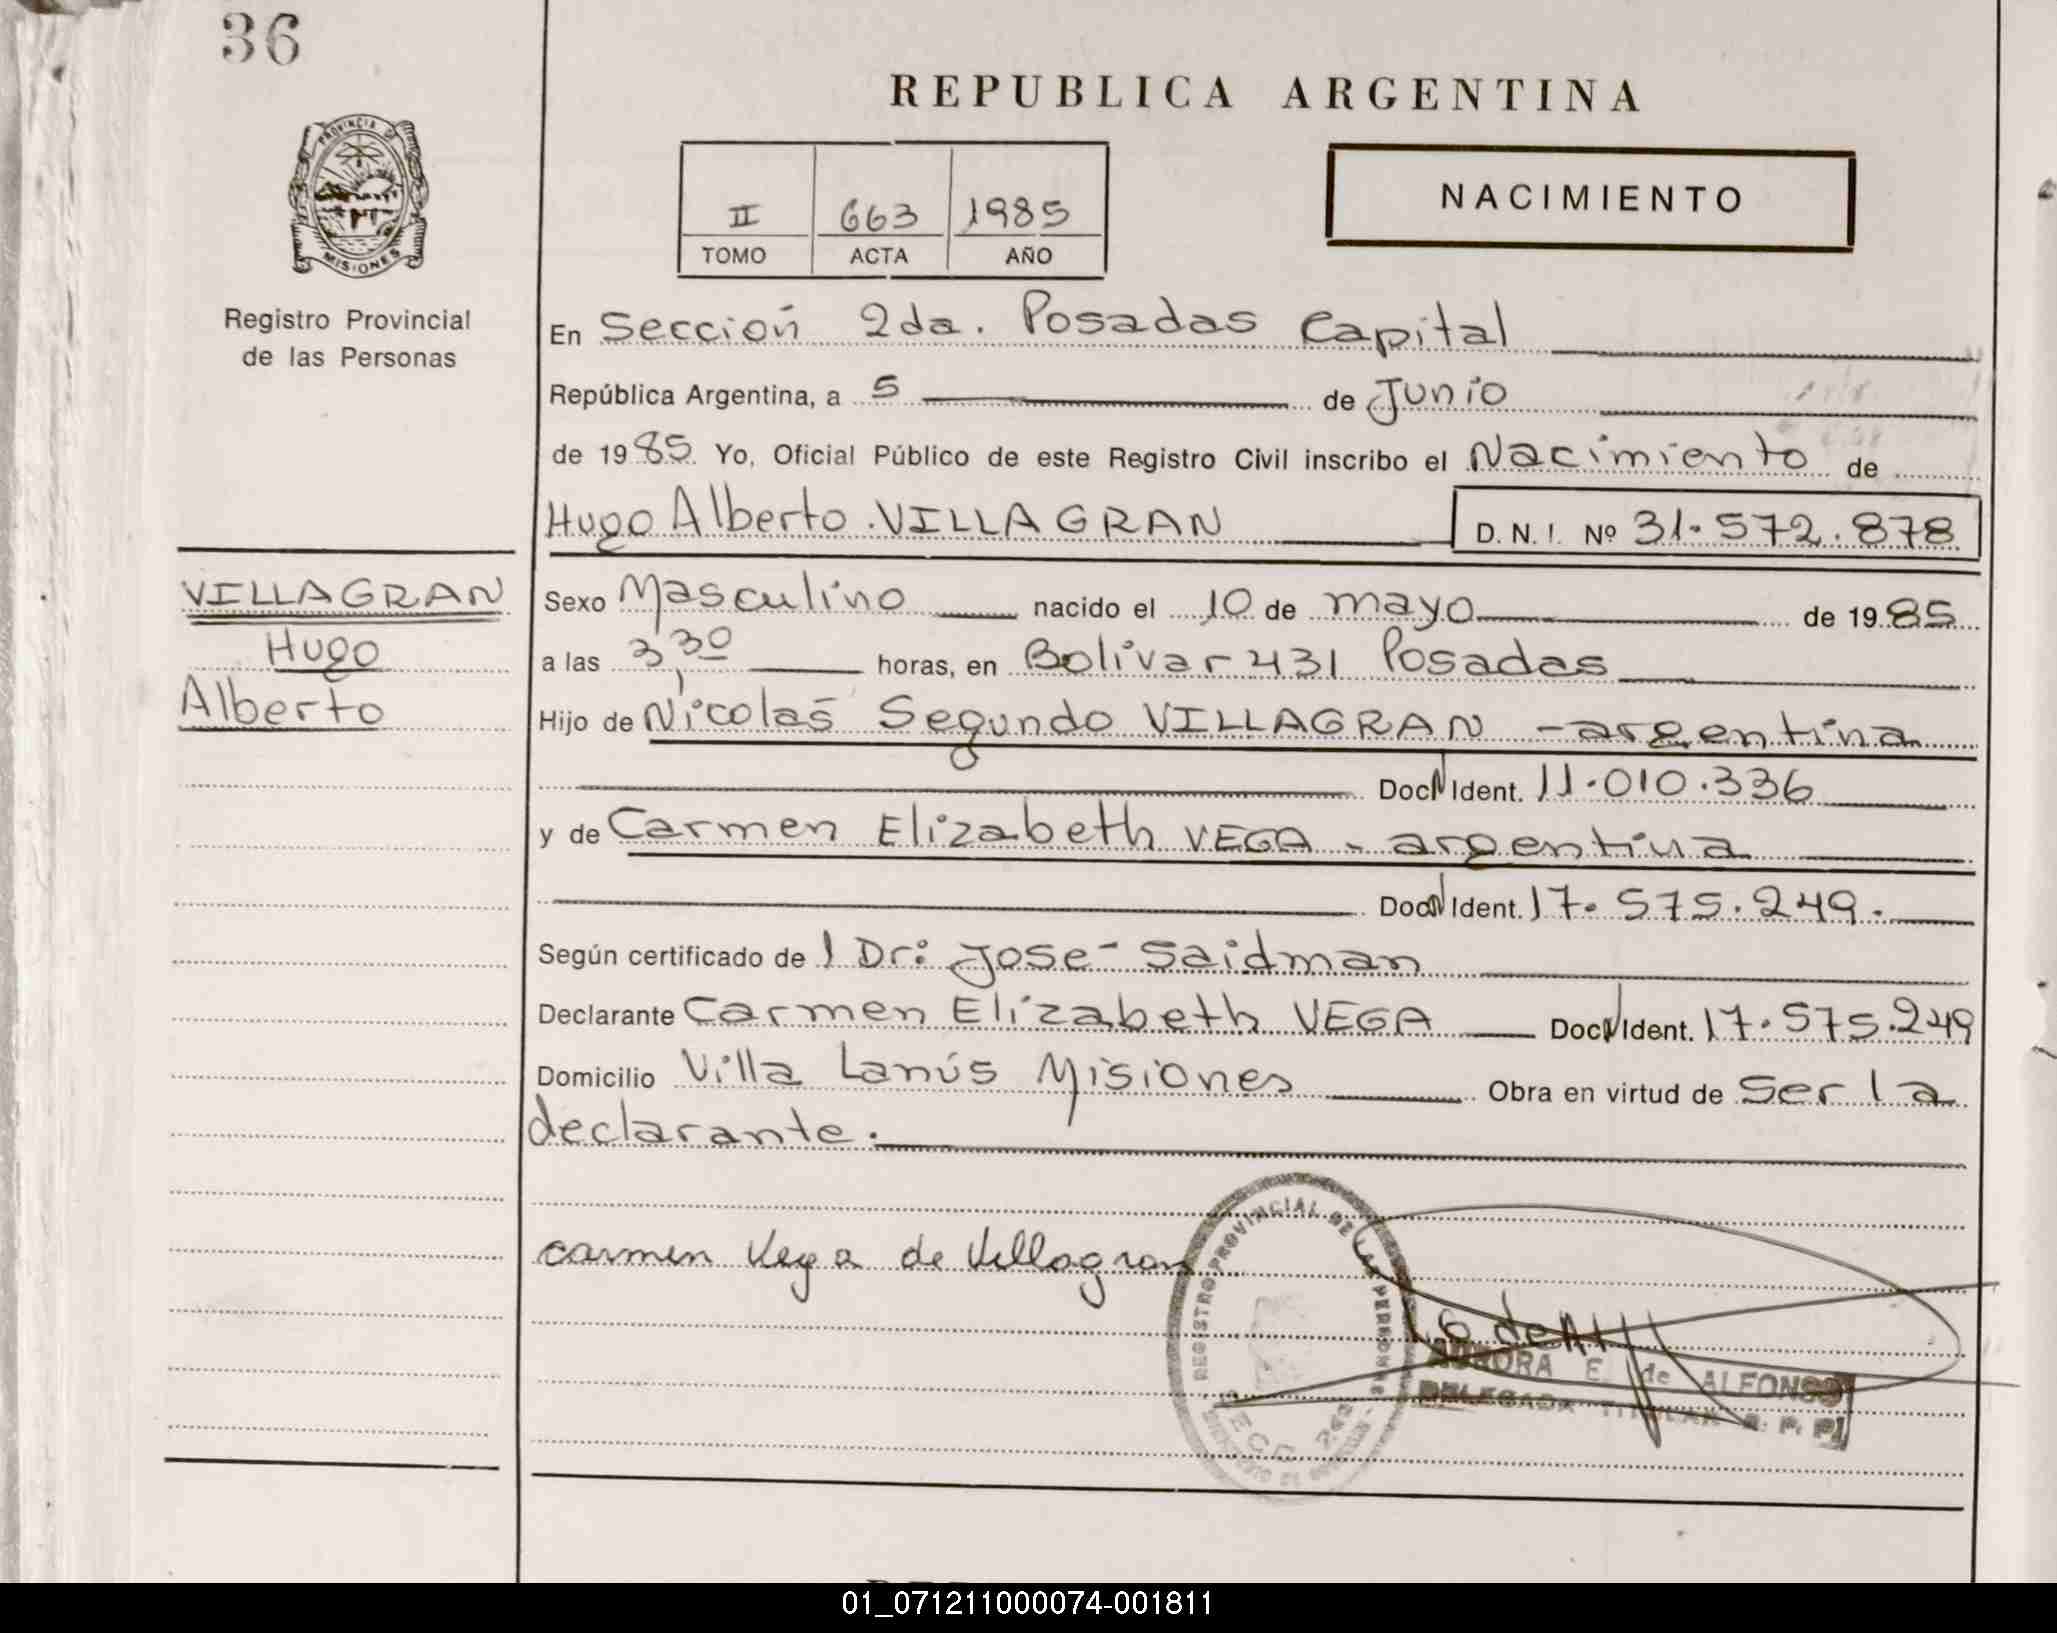 36
REPUBLICA ARGENTINA
PROVINCIA DE
MISIONES
Registro Provincial
de las Personas
II 663 1985
TOMO ACTA AÑO
NACIMIENTO
En Sección 2da. Posadas Capital
República Argentina, a 5 de Junio
de 1985 Yo, Oficial Público de este Registro Civil inscribo el Nacimiento de
Hugo Alberto VILLAGRAN D. N. I. Nº 31.572.878
VILLAGRAN
Hugo
Alberto
Sexo Masculino nacido el 10 de mayo de 1985
a las 3,30 horas, en Bolivar 431 Posadas
Hijo de Nicolás Segundo VILLAGRAN - argentina
Doc. Ident. 11.010.336
y de Carmen Elizabeth VEGA - argentina
Doc. Ident. 17.575.249.
Según certificado de l Dr: José Saidman
Declarante Carmen Elizabeth VEGA Doc. Ident. 17.575.249
Domicilio Villa Lanús Misiones Obra en virtud de Ser la
declarante.
carmen Vega de Villagran
REGISTRO PROVINCIAL DE LAS PERSONAS
AURORA E. de ALFONSO
DELEGADA TITULAR R. P. P.
01_071211000074-001811